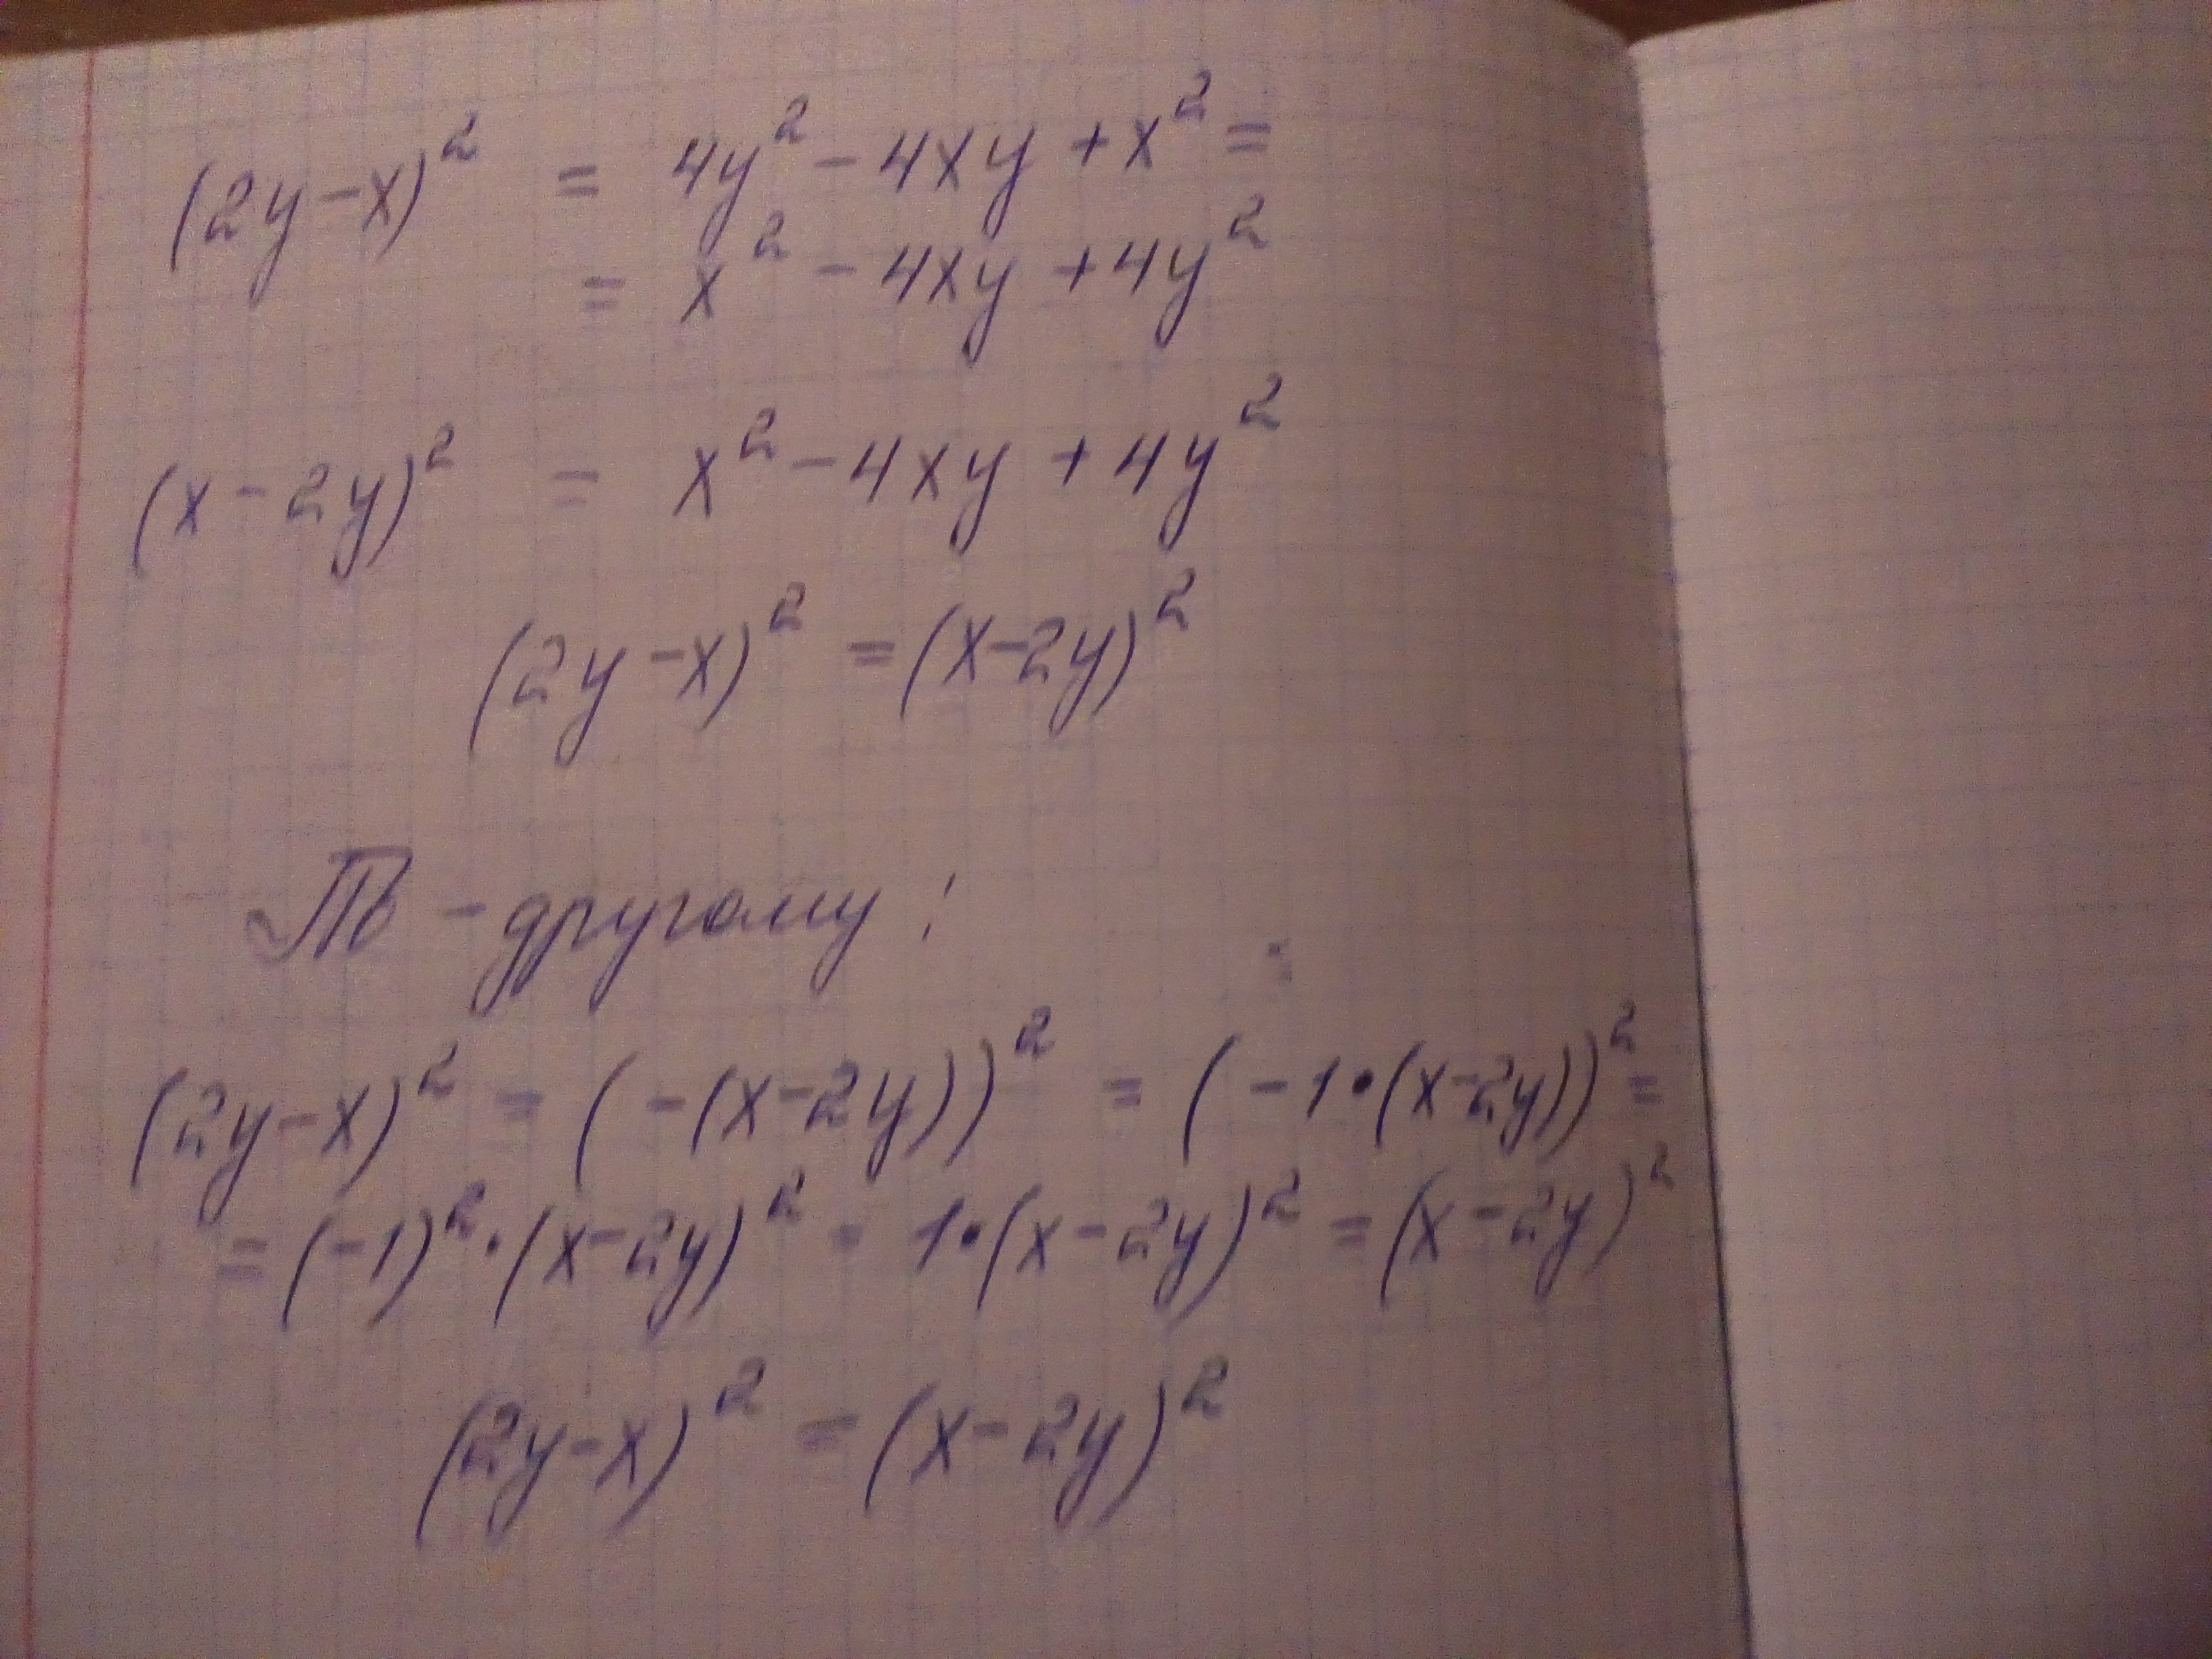 (2y-x)² = 4y² - 4xy + x² =
= x² - 4xy + 4y²
(x - 2y)² = x² - 4xy + 4y²
(2y - x)² = (x-2y)²
По - другому:
(2y-x)² = (-(x-2y))² = (-1•(x-2y))² =
= (-1)²•(x-2y)² = 1•(x-2y)² = (x-2y)²
(2y-x)² = (x-2y)²